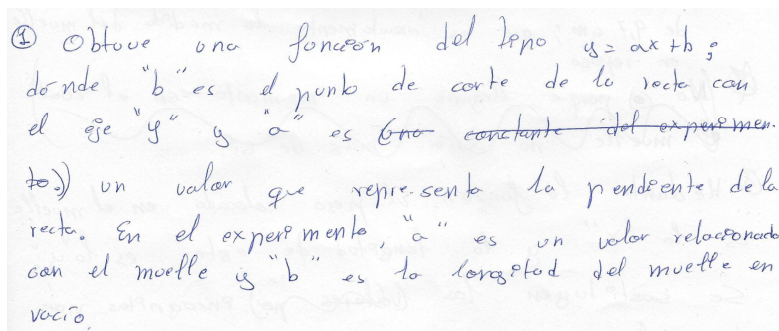 ① Obtuve una función del tipo y = ax + b;
dónde "b" es el punto de corte de la recta con
el eje "y" y "a" es (una constante del experimen-
to.)) un valor que representa la pendiente de la
recta. En el experimento, "a" es un valor relacionado
con el muelle y "b" es la longitud del muelle en
vacío.